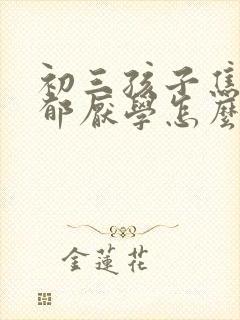 初三孩子焦
郁厭學怎麼
金蓮花